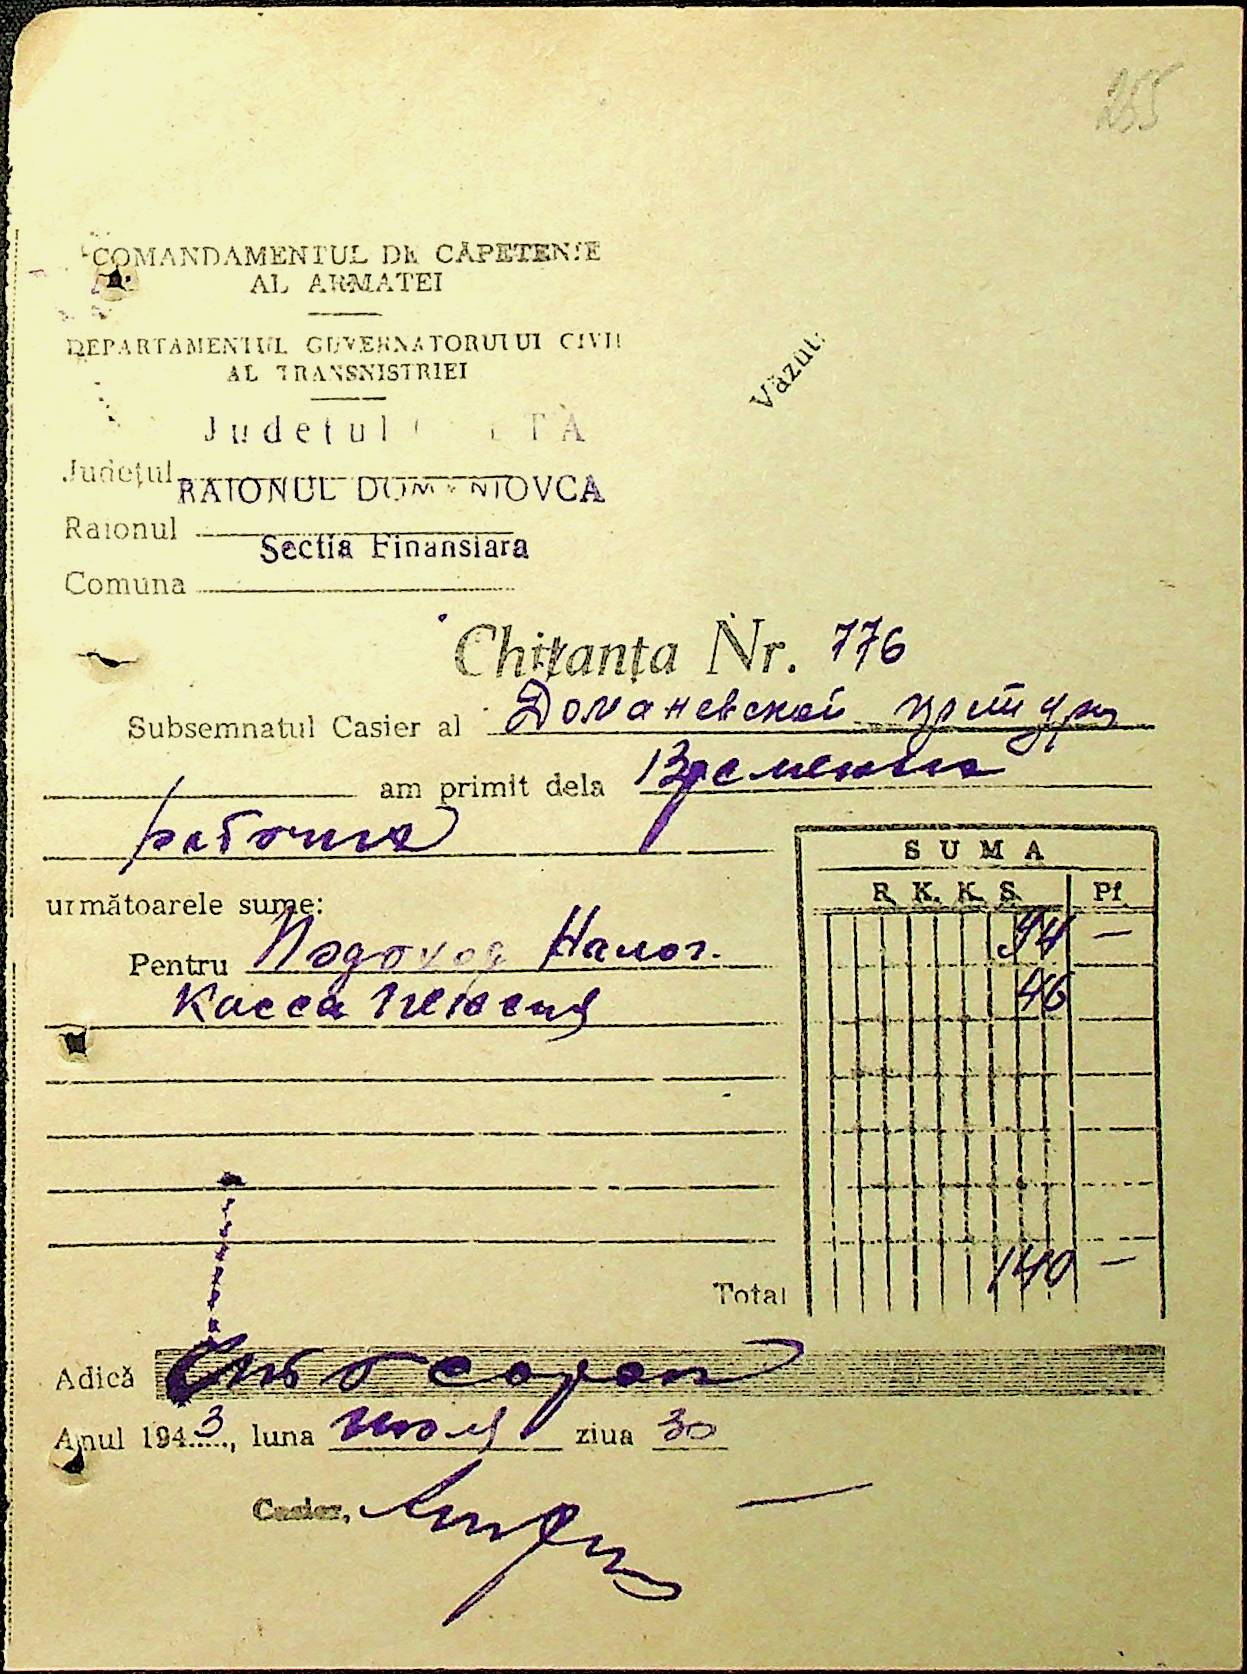 255
COMANDAMENTUL DE CAPETENIE
AL ARMATEI
DEPARTAMENTUL GUVERNATORULUI CIVIL
AL TRANSNISTRIEI
Văzut:
Judetul GOLTA
Județul
RAIONUL DOMANIOVCA
Raionul
Sectia Finansiara
Comuna
Chitanța Nr. 776
Subsemnatul Casier al Доманевской
am primit dela Времени
рабочих
SUMA
R. K. K. S. Pf.
următoarele sume:
Pentru Подоход Налог. 94 —
Касса пенсия 46
Total 140 —
Adică Сто сорок
Anul 1943, luna июля ziua 30
Casier,